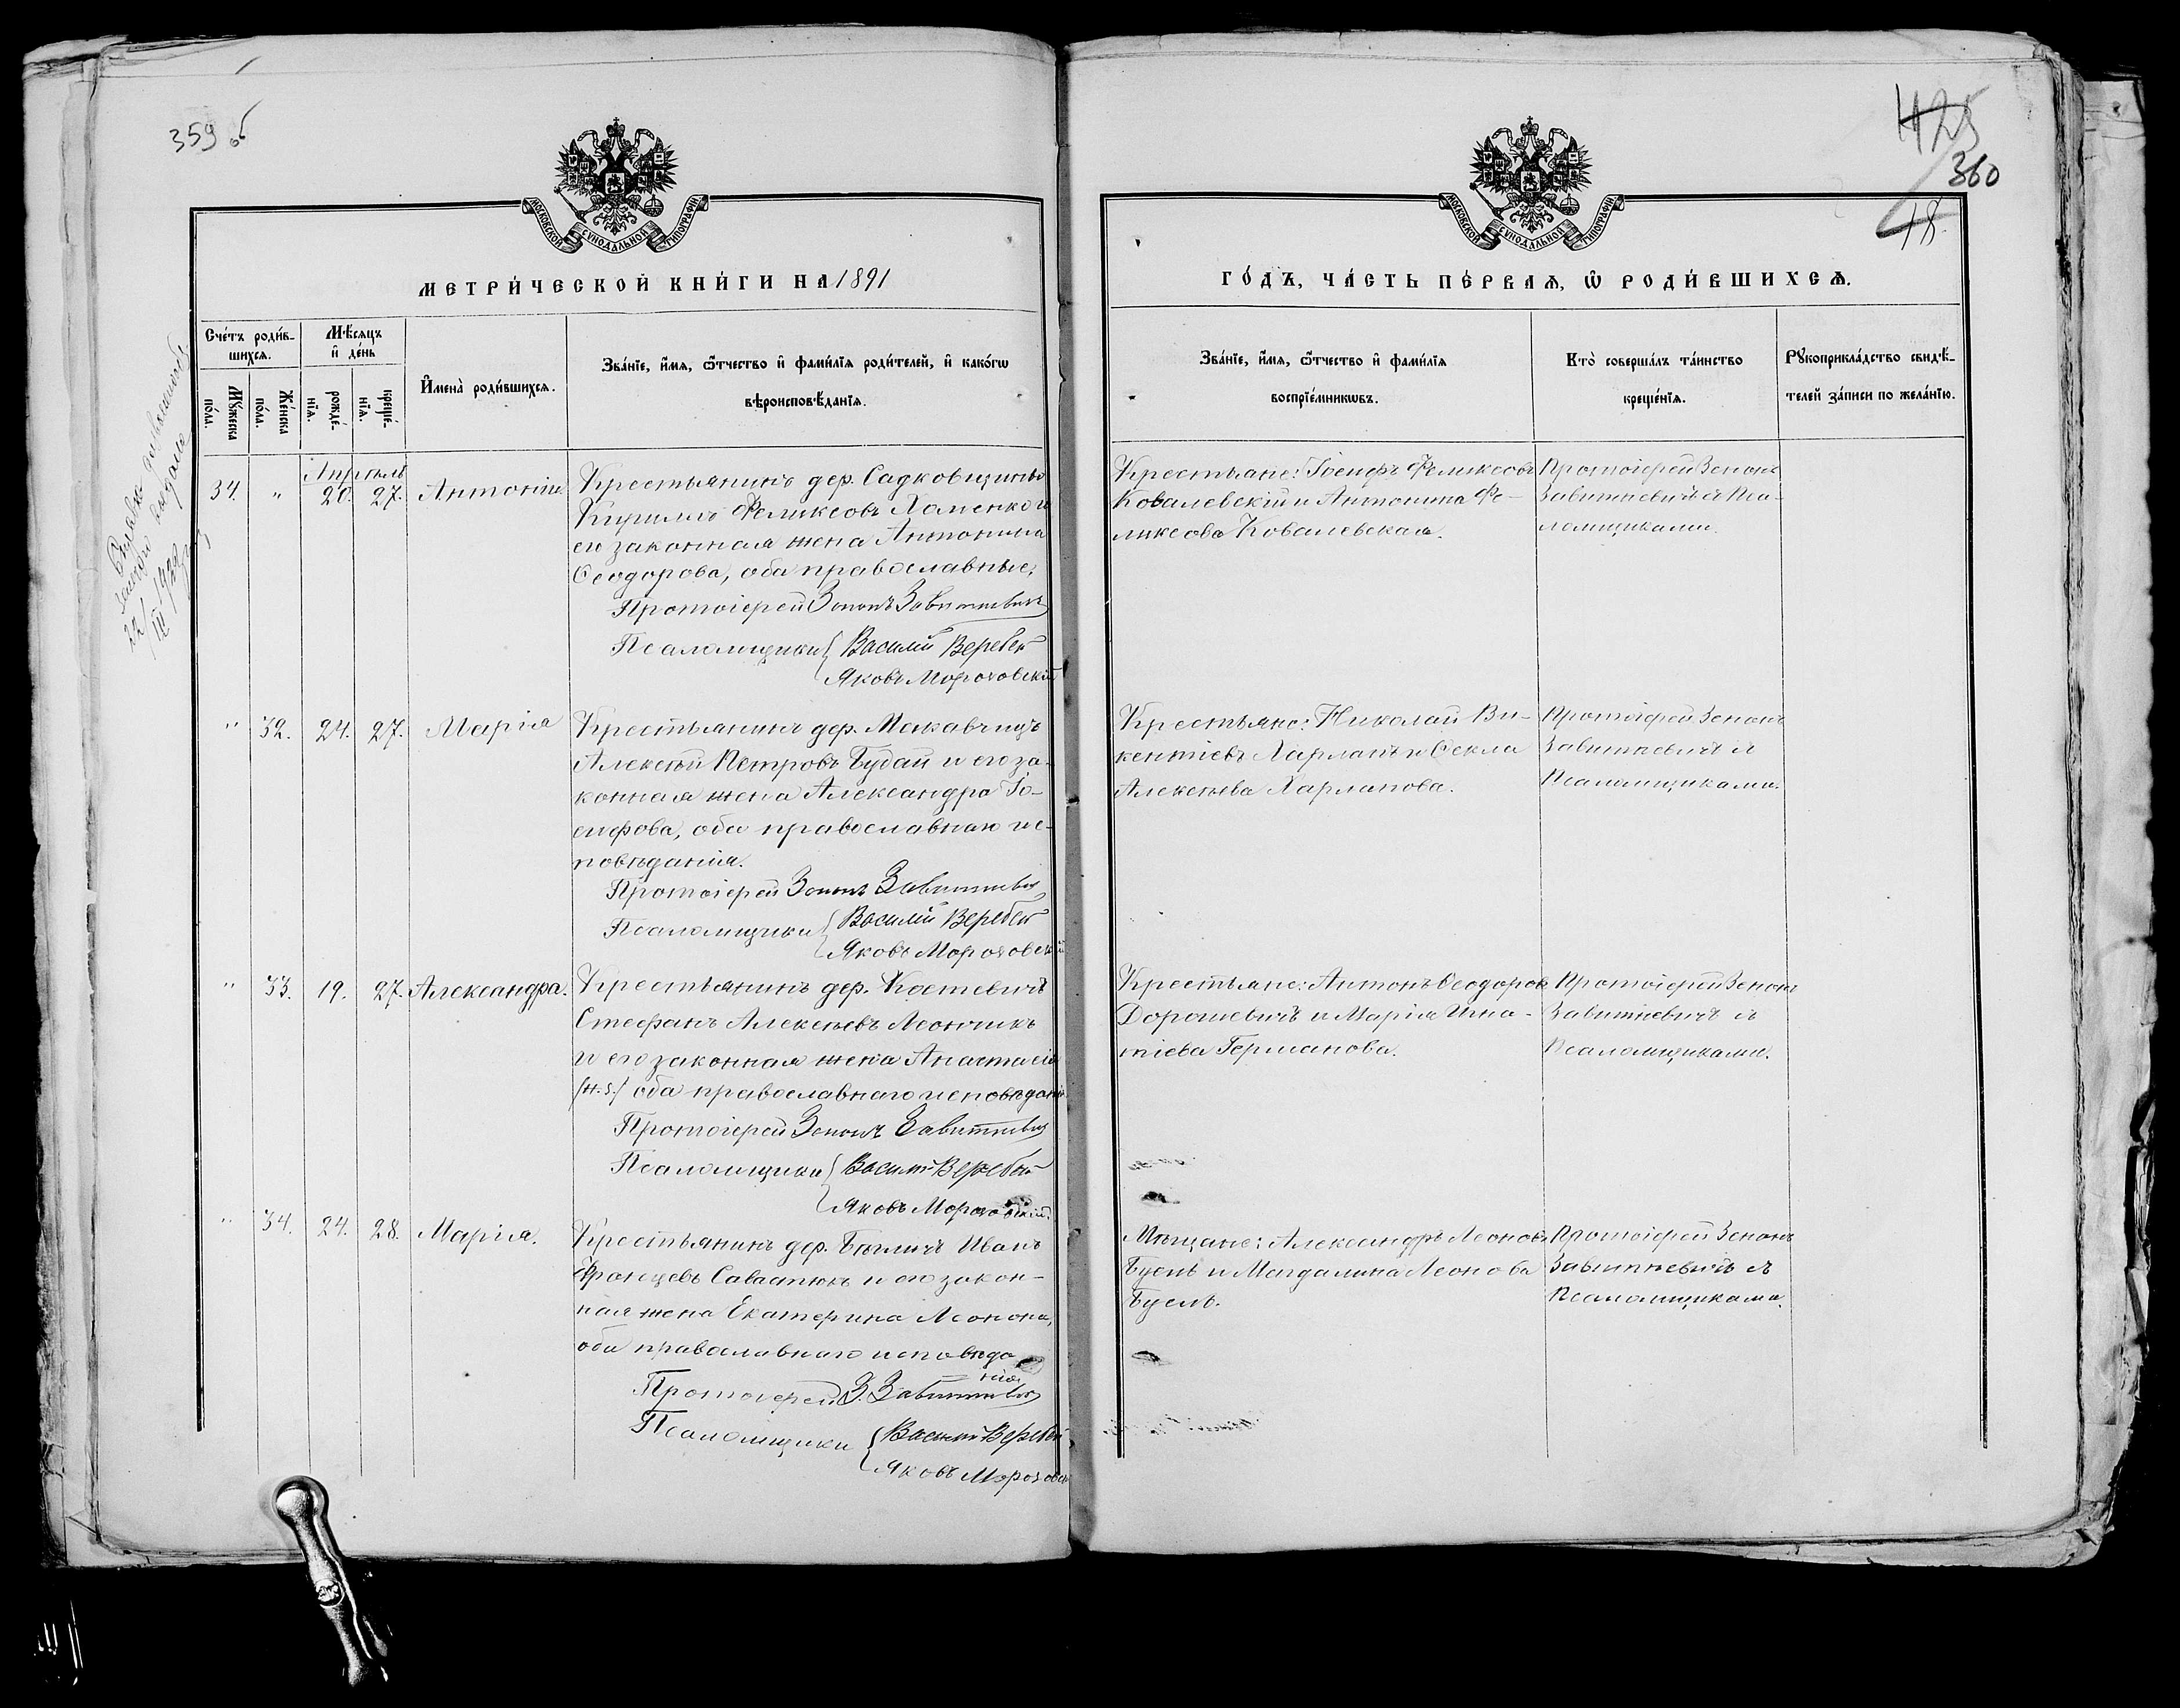 359 об
425
360
18.
МОСКОВСКОЙ СУНОДАЛЬНОЙ ТИПОГРАФІИ
МЕТРИ́ЧЕСКОЙ КНИ́ГИ НА 1891
Сче́тъ роди́в-
шихсѧ.
Мѣ́сѧцъ
и҆ де́нь
Мꙋ́жеска
по́ла.
Же́нска
по́ла.
рожде́-
нїѧ.
креще́-
нїѧ.
И҆мена̀ роди́вшихсѧ.
Зва́нїе, и҆́мѧ, ѿтчество и҆ фами́лїѧ роди́телей, и҆ како́гѡ
вѣроисповѣ́данїѧ.
Справка
22/III 1922
Апрѣль
34. „ 20. 27. Антоній
Крестьянинъ дер. Садковщины
Кириллъ Феликсовъ Хоменко и
его законная жена Антонина
Ѳеодорова, оба православные.
Протоіерей Зенонъ Завитневичъ
Псаломщики { Василій Веребей
Яковъ Мороховскій
„ 32. 24. 27. Марія
Крестьянинъ дер. Макавчицъ
Алексѣй Петровъ Будай и его за-
конная жена Александра Іо-
сифова, оба православнаго ис-
повѣданія.
Протоіерей Зенонъ Завитневичъ
Псаломщики { Василій Веребей
Яковъ Мороховскій
„ 33. 19. 27. Александра.
Крестьянинъ дер. Костевичъ
Стефанъ Алексѣевъ Леончикъ
и его законная жена Анастасія
оба православнаго исповѣданія
Протоіерей Зенонъ Завитневичъ
Псаломщики { Василій Веребей
Яковъ Мороховскій
„ 34. 24. 28. Марія.
Крестьянинъ дер. Бѣличъ Иванъ
Францевъ Савастюкъ и его закон-
ная жена Екатерина Леонона,
оба православнаго исповѣда
нія.
Протоіерей З. Завитневичъ
Псаломщики { Василій Веребей
Яковъ Мороховскій
МОСКОВСКОЙ СУНОДАЛЬНОЙ ТИПОГРАФІИ
ГО́ДЪ, ЧА́СТЬ ПЕ́РВАѦ, Ѡ҆ РОДИ́ВШИХСѦ.
Зва́нїе, и҆́мѧ, ѿтчество и҆ фами́лїѧ
воспрїе́мникѡвъ.
Кто̀ соверша́лъ та́инство
креще́нїѧ.
Рꙋкоприкла́дство свидѣ́-
телей за́писи по жела́нїю.
Крестьяне: Іосифъ Феликсовъ
Ковалевскій и Антонина Фе-
ликсова Ковалевская.
Протоіерей Зенонъ
Завитневичъ съ Пса-
ломщиками.
Крестьяне: Николай Ви-
кентіевъ Харланъ и Ѳекла
Алексѣева Харланова.
Протоіерей Зенонъ
Завитневичъ съ
Псаломщиками.
Крестьяне: Антонъ Ѳеодоровъ
Дорошевичъ и Марія Игна-
тіева Германова.
Протоіерей Зенонъ
Завитневичъ съ
Псаломщиками.
Мѣщане: Александръ Леоновъ
Бусель и Магдалина Леонова
Бусель.
Протоіерей Зенонъ
Завитневичъ съ
Псаломщиками.